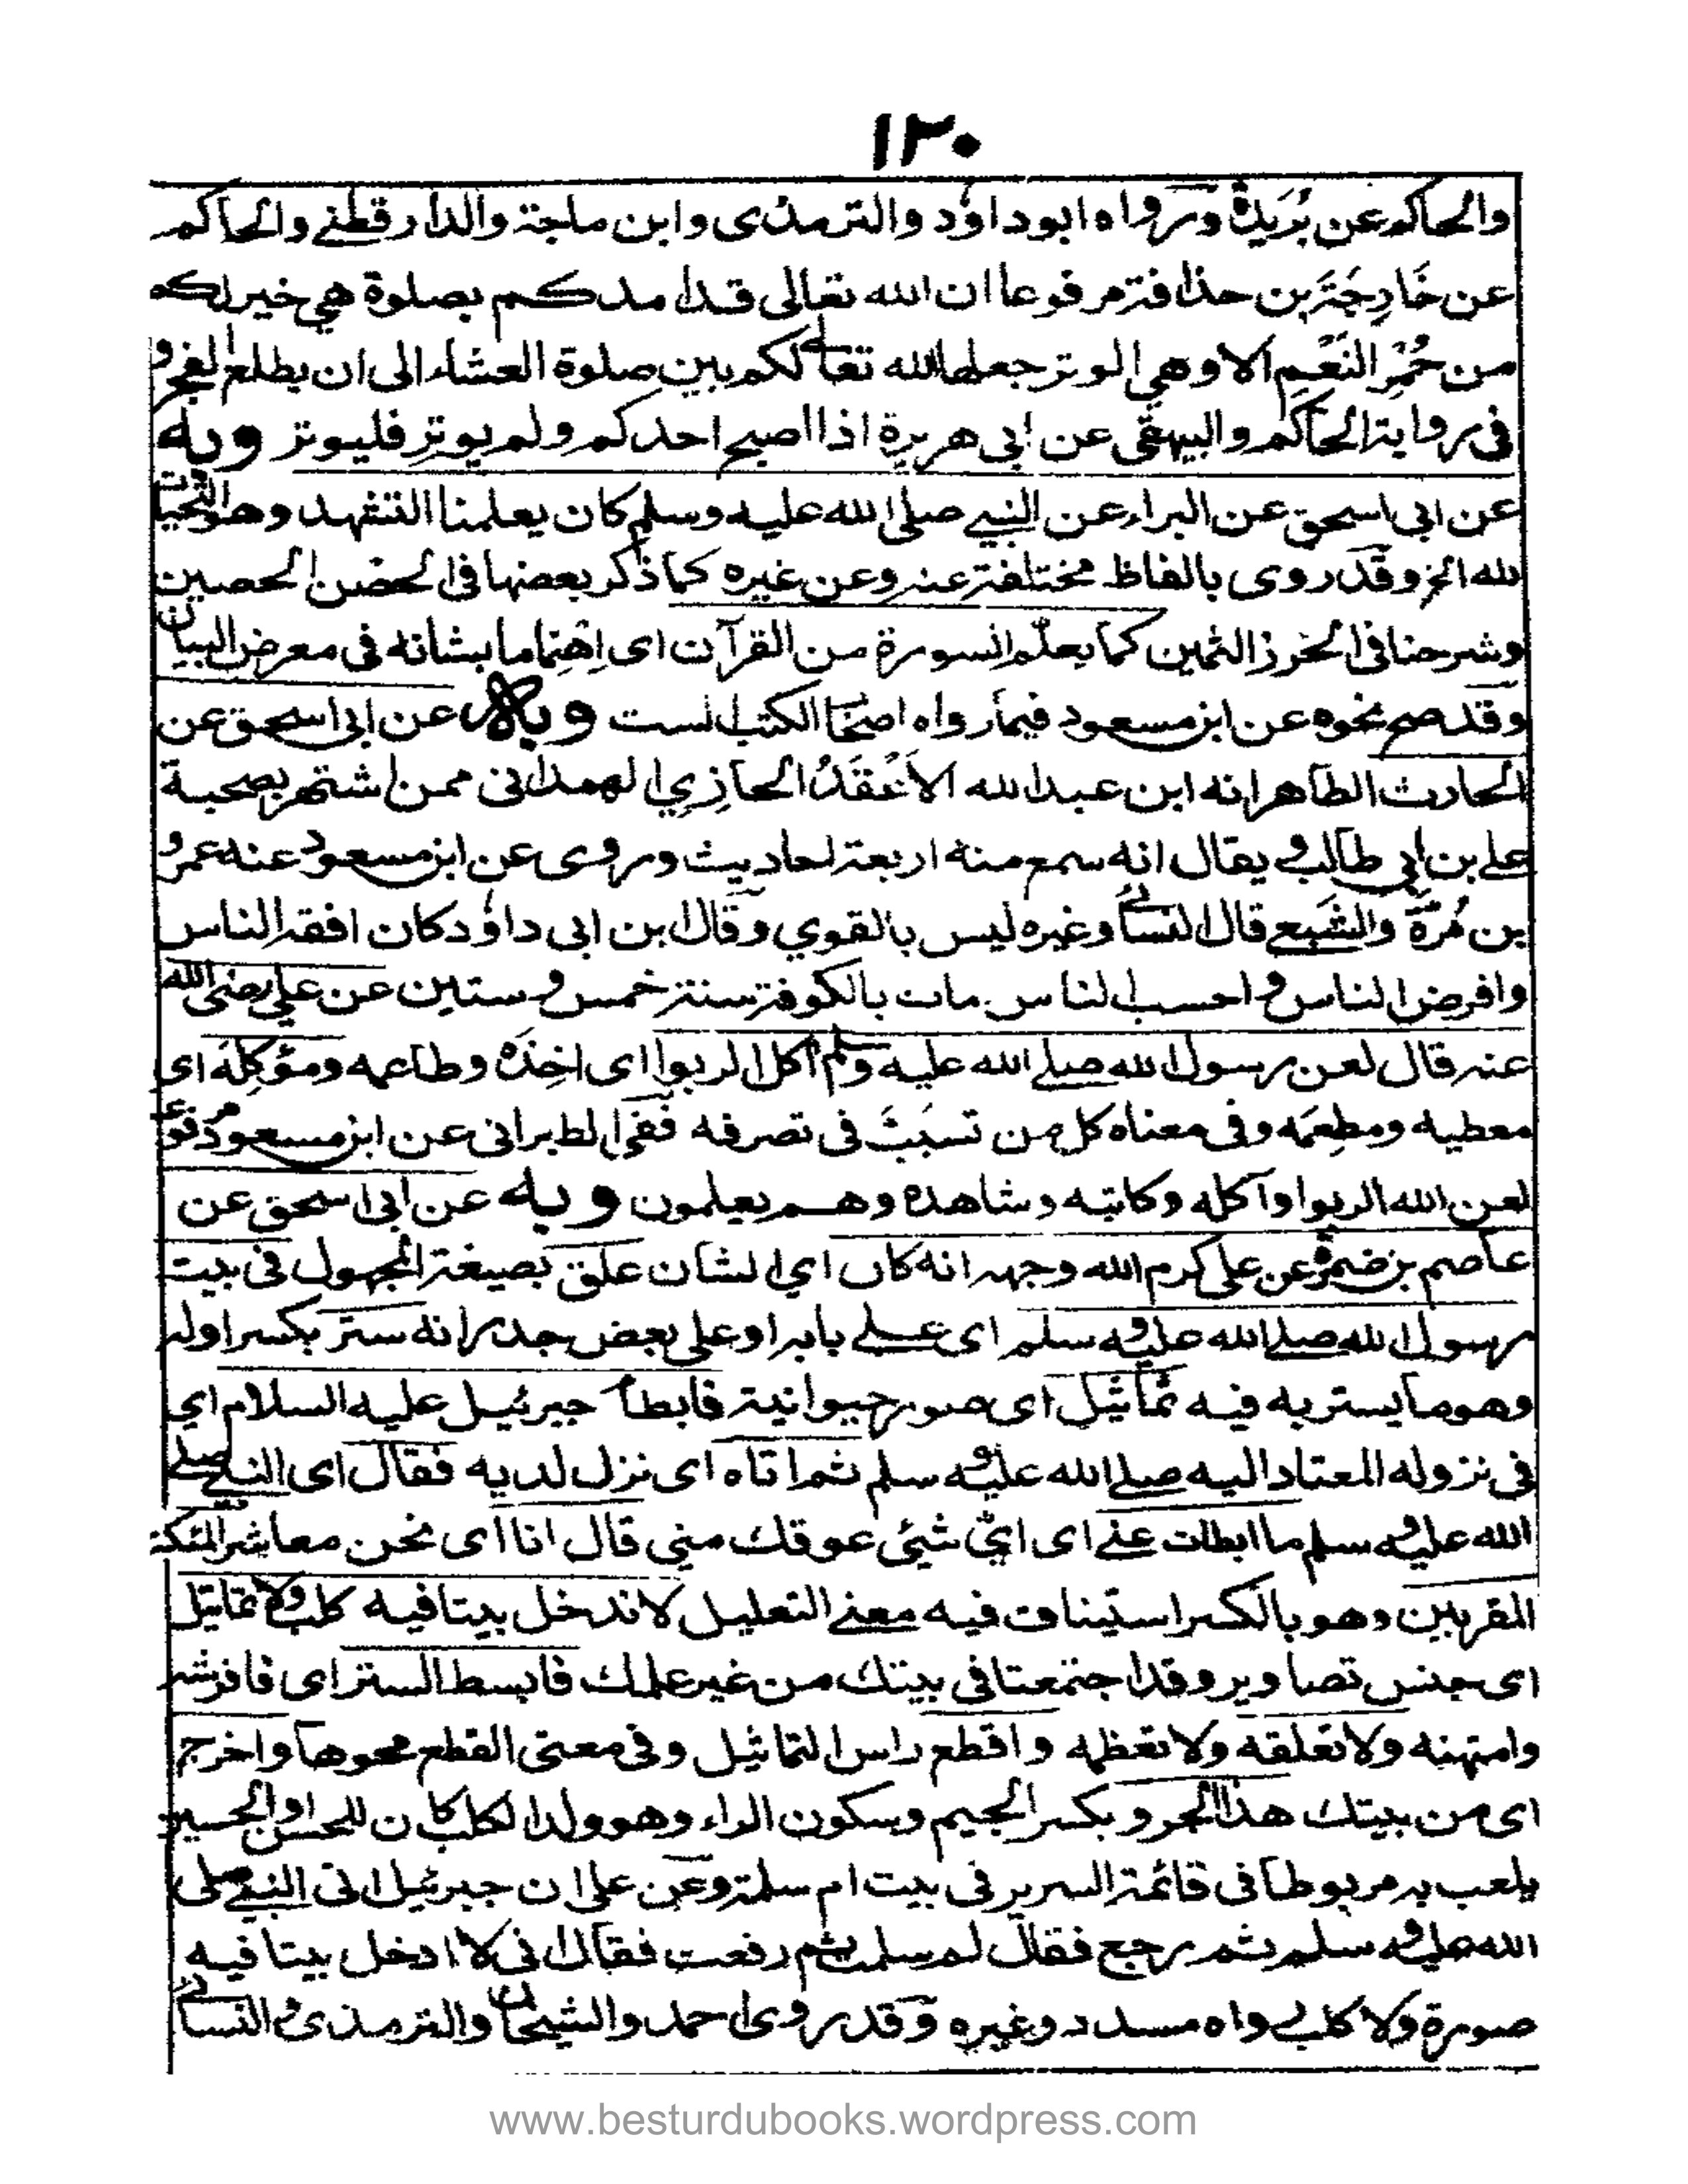 ١٣٠
والحاكم عن بُرَيدَة ورواه ابوداؤد والترمذى وابن ماجة والدارقطني والحاكم
عن خَارِجَة بن حذافة مرفوعا ان الله تعالى قد امدكم بصلوة هي خير لكم
من حُمْرِ النَّعَم الا وهي الوتر جعلها الله تعالى لكم بين صلوة العشاء الى ان يطلع الفجر و
فى رواية الحاكم والبيهقى عن ابى هريرة اذا اصبح احدكم ولم يوتر فليوتر وبه
عن ابى اسحق عن البراء عن النبي صلى الله عليه وسلم كان يعلمنا التشهد وهو التحيات
لله الخ وقد روى بالفاظ مختلفة عنه وعن غيره كما ذكر بعضها فى الحصن الحصين
وشرحنا فى الحرز الثمين كما يعلم السورة من القرآن اى اهتماما بشانه فى معرض البيان
وقد صح نحوه عن ابن مسعود فيما رواه اصحاب الكتب الست وبه عن ابى اسحق عن
الحارث الظاهر انه ابن عبدالله الاعور الحازي الهمدانى ممن اشتهر بصحبة
علي بن ابي طالب ويقال انه سمع منه اربعة احاديث وروى عن ابن مسعود عنه عمرو
بن مُرَّة والشعبي قال النسائي وغيره ليس بالقوي وقال ابن ابى داؤد كان افقه الناس
وافرض الناس واحسب الناس مات بالكوفة سنة خمس وستين عن علي رضى الله
عنه قال لعن رسول الله صلى الله عليه وسلم آكل الربوا اى اخذه وطاعمه ومؤكِله اى
معطيه ومطعمه وفى معناه كل من تسبب فى تصرفه ففى الطبرانى عن ابن مسعود مرفوعا
لعن الله الربوا وآكله وكاتبه وشاهده وهم يعلمون وبه عن ابى اسحق عن
عاصم بن ضمرة عن على كرم الله وجهه انه كان اي الشان علق بصيغة المجهول فى بيت
رسول الله صلى الله عليه وسلم اى على بابه او على بعض جدرانه ستر بكسر اوله
وهو ما يستر به فيه تماثيل اى صور حيوانية فابطأ جبرئيل عليه السلام اي
فى نزوله المعتاد اليه صلى الله عليه وسلم ثم اتاه اى نزل لديه فقال اى النبي صلى
الله عليه وسلم ما ابطات عني اى ايّ شيئ عوقك مني قال انا اى نحن معاشر الملئكة
المقربين وهو بالكسر استيناف فيه معنى التعليل لا ندخل بيتا فيه كلب ولا تماثيل
اى جنس تصاوير وقد اجتمعتا فى بيتك من غير علمك فابسط الستر اى فافرشه
وامتهنه ولا تعلقه ولا تعظمه واقطع راس التماثيل وفى معنى القطع محوها واخرج
اى من بيتك هذا الجرو بكسر الجيم وسكون الراء وهو ولد الكلب كان للحسن او الحسين
يلعب به مربوطا فى قائمة السرير فى بيت ام سلمة وعن على ان جبرئيل اتى النبي صلى
الله عليه وسلم ثم رجع فقال له سلمت ثم رفعت فقال انى لا ادخل بيتا فيه
صورة ولا كلب رواه مسدد وغيره وقد روى احمد والشيخان والترمذى والنسائي
www.besturdubooks.wordpress.com